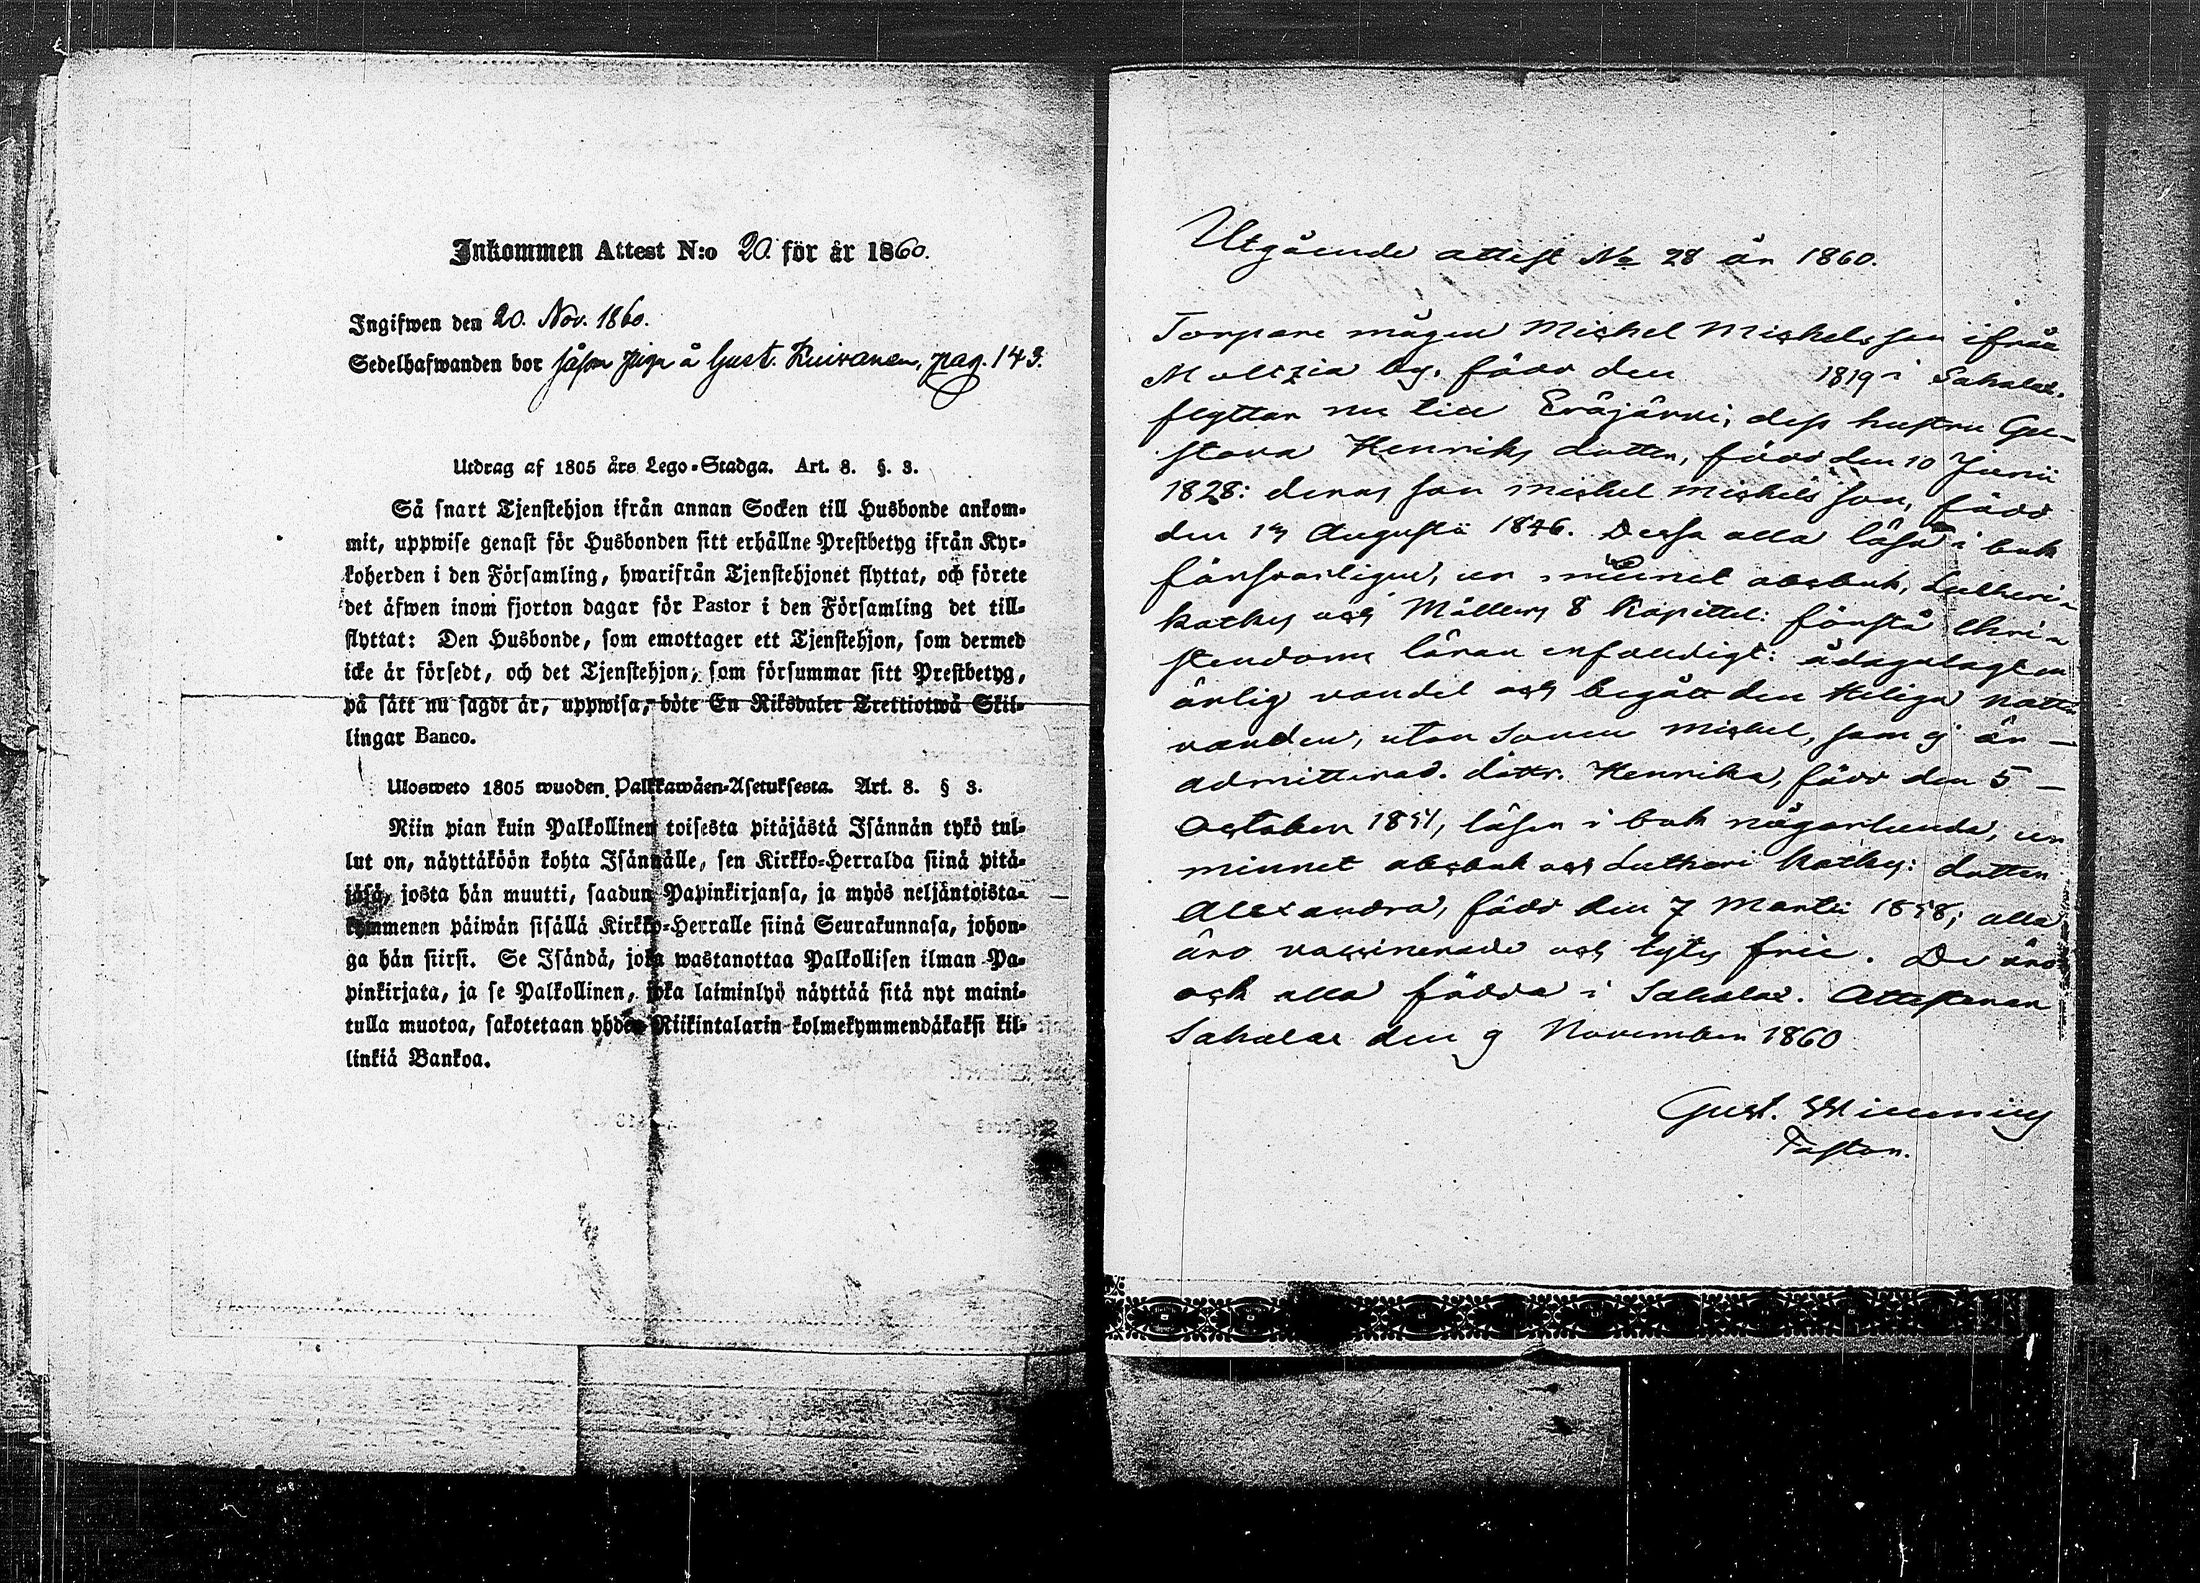 Inkommen Attest N:o 20. för år 1860.
Ingifwen den 20. Nov. 1860.
Sedelhafwanden bor såsom piga å Gust. Kuivanen, pag. 143.
Utdrag af 1805 års Lego-Stadga. Art. 8. §. 3.
Så snart Tjenstehjon ifrån annan Socken till Husbonde ankom-
mit, uppwise genast för Husbonden sitt erhållne Prestbetyg ifrån Kyr-
koherden i den Församling, hwarifrån Tjenstehjonet flyttat, och förete
det äfwen inom fjorton dagar för Pastor i den Församling det till-
flyttat: Den Husbonde, som emottager ett Tjenstehjon, som dermed
icke är försedt, och det Tjenstehjon, som försummar sitt Prestbetyg,
på sätt nu sagdt är, uppwisa, böte En Riksdaler Trettiotwå Skil-
lingar Banco.
Ulosweto 1805 wuoden Palkkawäen-Asetuksesta. Art. 8. § 3.
Niin pian kuin Palkollinen toisesta pitäjästä Isännän tykö tul-
lut on, näyttäköön kohta Isännälle, sen Kirkko-Herralda siinä pitä-
jäsä, josta hän muutti, saadun Papinkirjansa, ja myös neljäntoista-
kymmenen päiwän sisällä Kirkko-Herralle siinä Seurakunnasa, johon-
ga hän siirsi. Se Isändä, joka wastanottaa Palkollisen ilman Pa-
pinkirjata, ja se Palkollinen, joka laiminlyö näyttää sitä nyt maini-
tulla muotoa, sakotetaan yhden Riikintalarin kolmekymmendäkaksi kil-
linkiä Bankoa.
Utgående attest No 28 år 1860.
Torpare mågen Michel Michelsson ifrån
Moltzia by, född den 1819 i Sahalax.
flyttar nu till Eräjärvi; dess hustru Gu-
stava Henriks dotter, född den 10 Junii
1828: deras son Michel Michels son, född
den 19 Augusti 1846. Dessa alla läsa i bok
försvarligen, ur minnet abcbok, Lutheri
kathes och Möllers 8 Kapittel: förstå Chri-
stendoms läran enfaldigt: ådagalagt en
ärlig vandel och begått den Heliga natt
varden, utan sonen Michel, som ej är
admitterad. dottr. Henrika, född den 5
October 1851, läser i bok någorlunda, ur
minnet abcbok och Lutheri kathes: dotter
Alexandra, född den 7 Martii 1858; alla
äro vaccinerade och lytes frie. De äro
ock alla födda i Sahalax. Attesterar
Sahalax den 9 November 1860
Gust. Winning
Pastor.